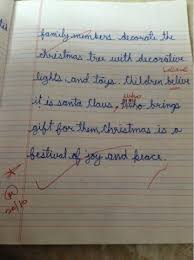 family members decorate the
christmas tree with decorative
lights, and toys. Children belive
it is santa claus, who brings
gift for them, Christmas is a
festival of joy and peace.